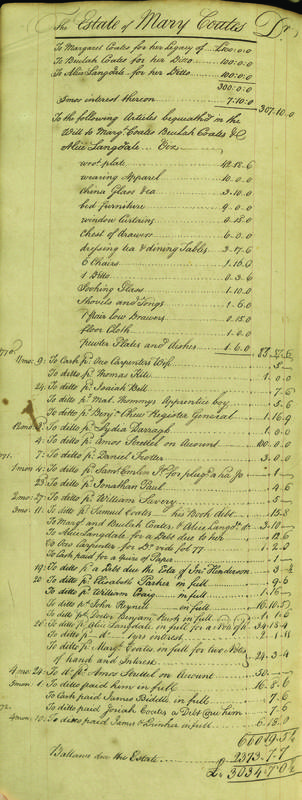 The Estate of Mary Coates Dr.
To Margaret Coates for her Legacy of £100.0.0
To Beulah Coates for her Ditto 100.0.0
To Alice Langdale for her Ditto 100.0.0
300.0.0
3 mos interest thereon 7.10.0 307.10.0
To the following Articles bequeathed in the
Will to Margt. Coates Beulah Coates &
Alice Langdale Viz
wrot. plate
wearing Apparel 10.0.0
China Glass &ca 3.10.0
bed furniture 9.0.0
window Curtains 0.15.0
Chest of Drawers 6.0.0
dressing tea & dining Tables 3.17.6
6 Chairs 1.16.0
1 Ditto 0.3.6
Looking Glass 1.10.0
Shovels and Tongs 1.5.0
1 pair low Drawers 0.15.0
floor Cloth
Pewter Plates and dishes 1.6.0
9: To Cash pd. Geo Carpenters Wife 5
To ditto pd. Thomas Kite 1.0.0
24: To ditto pd. Isaiah Bell 7.6
To ditto pd. Mat. Apprentice boy 5.6
To ditto pd. Benjn. Chew Register General 1.16.9
To ditto pd. Lydia Darragh 1.0.0
4: To ditto pd. Amos Strettel on Account 100.0.0
7: To ditto pd. Daniel Trotter 3.0.0
To ditto pd. Saml. Emlen
23: To ditto pd. Jonathan Paul 4.6
2 mo: 27: To ditto pd. William Savery 5
3 mo: 11: To ditto pd. Samuel Coates his Book debt 15.8
To Margt. and Beulah Coates & Alice Langd.
To Alice Langdale for a Debt due to her 12.6
To Geo Carpenter for Do. 1.2.0
To Cash paid for a Quire of Paper
19: To ditto pd. a Debt due the Esta. of Jno. Henderson
20: To ditto pd. Elizabeth Parker in full 9.6
To ditto pd. William Craig in full 1.16
To ditto pd. John Reynell in full 16.10.
To ditto pd. Doctor Benjam Rush in full
To ditto pd. Alice Langdale in full for
To ditto pd. do. 1 yrs interest 2.1.11
To ditto pd. Margt. Coates in full for two Notes
of hand and Interest 24.3.4
4 mo: 24: To do. pd. Amos Strettel on Account 50
To ditto paid him in full 16.8.6
To Cash paid James Biddle in full 7.6
To ditto paid Josiah Coates a Debt due him 7.6
4 mo: 10: To ditto paid James & Drinker in full 6.15.0
Ballance due the Estate 2373.7.7